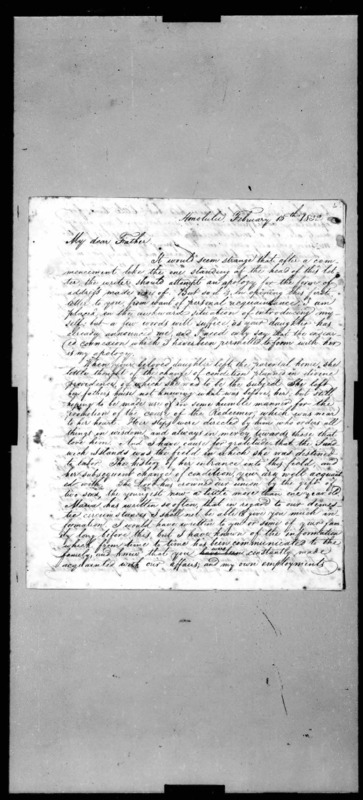 Honolulu February 15th 18
My dear Father
It would seem strange that after a com-
mencement like the one standing at the head of this let-
ter the writer should attempt an apology for the form of
address made use of. But so it is, in opening this
letter to you from want of personal acquaintance I am
placed in the awkward situation of introducing my
self, but a few words will suffice, as your daughter has
already announced me, and I need only say that the sacred
connexion which I have been permitted to form with her
is my apology.
When your beloved daughter left the parental home, she
little thought of the change of condition planned in divine
providence of which she was to be the subject. She left
her fathers house not knowing what was before her, but still
hoping to be made use of in some humble manner for the
promotion of the cause of the Redeemer, which was near
to her heart. Her steps were directed by him who orders all
things in wisdom and always in mercy towards those that
love him. And I have cause for gratitude that the Sand-
wich Islands was the field in which she was destined
to labor. The history of her entrance into this field, and
her subsequent change of condition, you are well acquaint-
ed with. The Lord has crowned our union by the gift of
two sons, the youngest now a little more than one year old
Maria has written so often, that in regard to our domes-
tic circumstances I shall not be able to give you much in
formation. I would have written to you or some of your fam-
ily long before this, but I have known of the information
which from time to time has been communicated to the
family, and knew that you constantly made
acquainted with our affairs, and my own employments